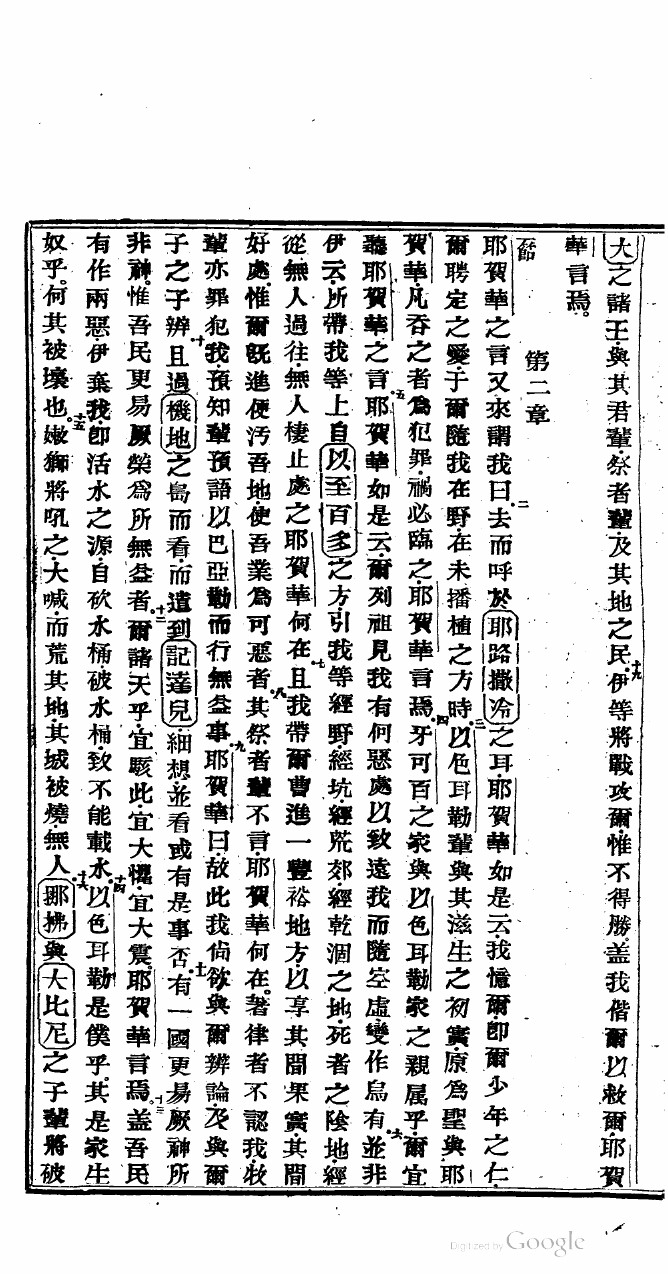 大之諸王與其君輩祭者輩及其地之民十九伊等將戰攻爾惟不得勝盖我偕爾以救爾耶賀
華言焉。
第二章
耶賀華之言又來謂我曰二去而呼於耶路撒冷之耳耶賀華如是云我憶爾卽爾少年之仁
爾聘定之愛于爾隨我在野在未播植之方時三以色耳勒輩與其滋生之初實原爲聖與耶
賀華凡吞之者爲犯罪禍必臨之耶賀華言焉四牙可百之家與以色耳勒家之親属乎爾宜
聽耶賀華之言五耶賀華如是云爾列祖見我有何惡處以致遠我而隨空虛變作烏有六並非
伊云所帶我等上自以至百多之方引我等經野經坑經荒郊經乾涸之地死者之陰地經
從無人過往無人棲止處之耶賀華何在七且我帶爾曹進一豐裕地方以享其間果實其間
好處惟爾旣進便汚吾地使吾業爲可惡者八其祭者輩不言耶賀華何在。著律者不認我牧
輩亦罪犯我預知輩預語以巴亞勒而行無益事九耶賀華曰故此我尙欲與爾辨論及與爾
子之子辨十且過機地之島而看而遣到記達兒細想並看或有是事否十一有一國更易厥神所
非神。惟吾民更易厥榮爲所無益者十二爾諸天乎宜駭此宜大懼宜大震耶賀華言焉。十三盖吾民
有作兩惡伊棄我卽活水之源自砍水桶破水桶致不能載水十四以色耳勒是僕乎。其是家生
奴乎。何其被壞也。十五嫩獅將吼之大喊而荒其地其城被燒無人十六挪拂與大比尼之子輩將破
Digitized by Google